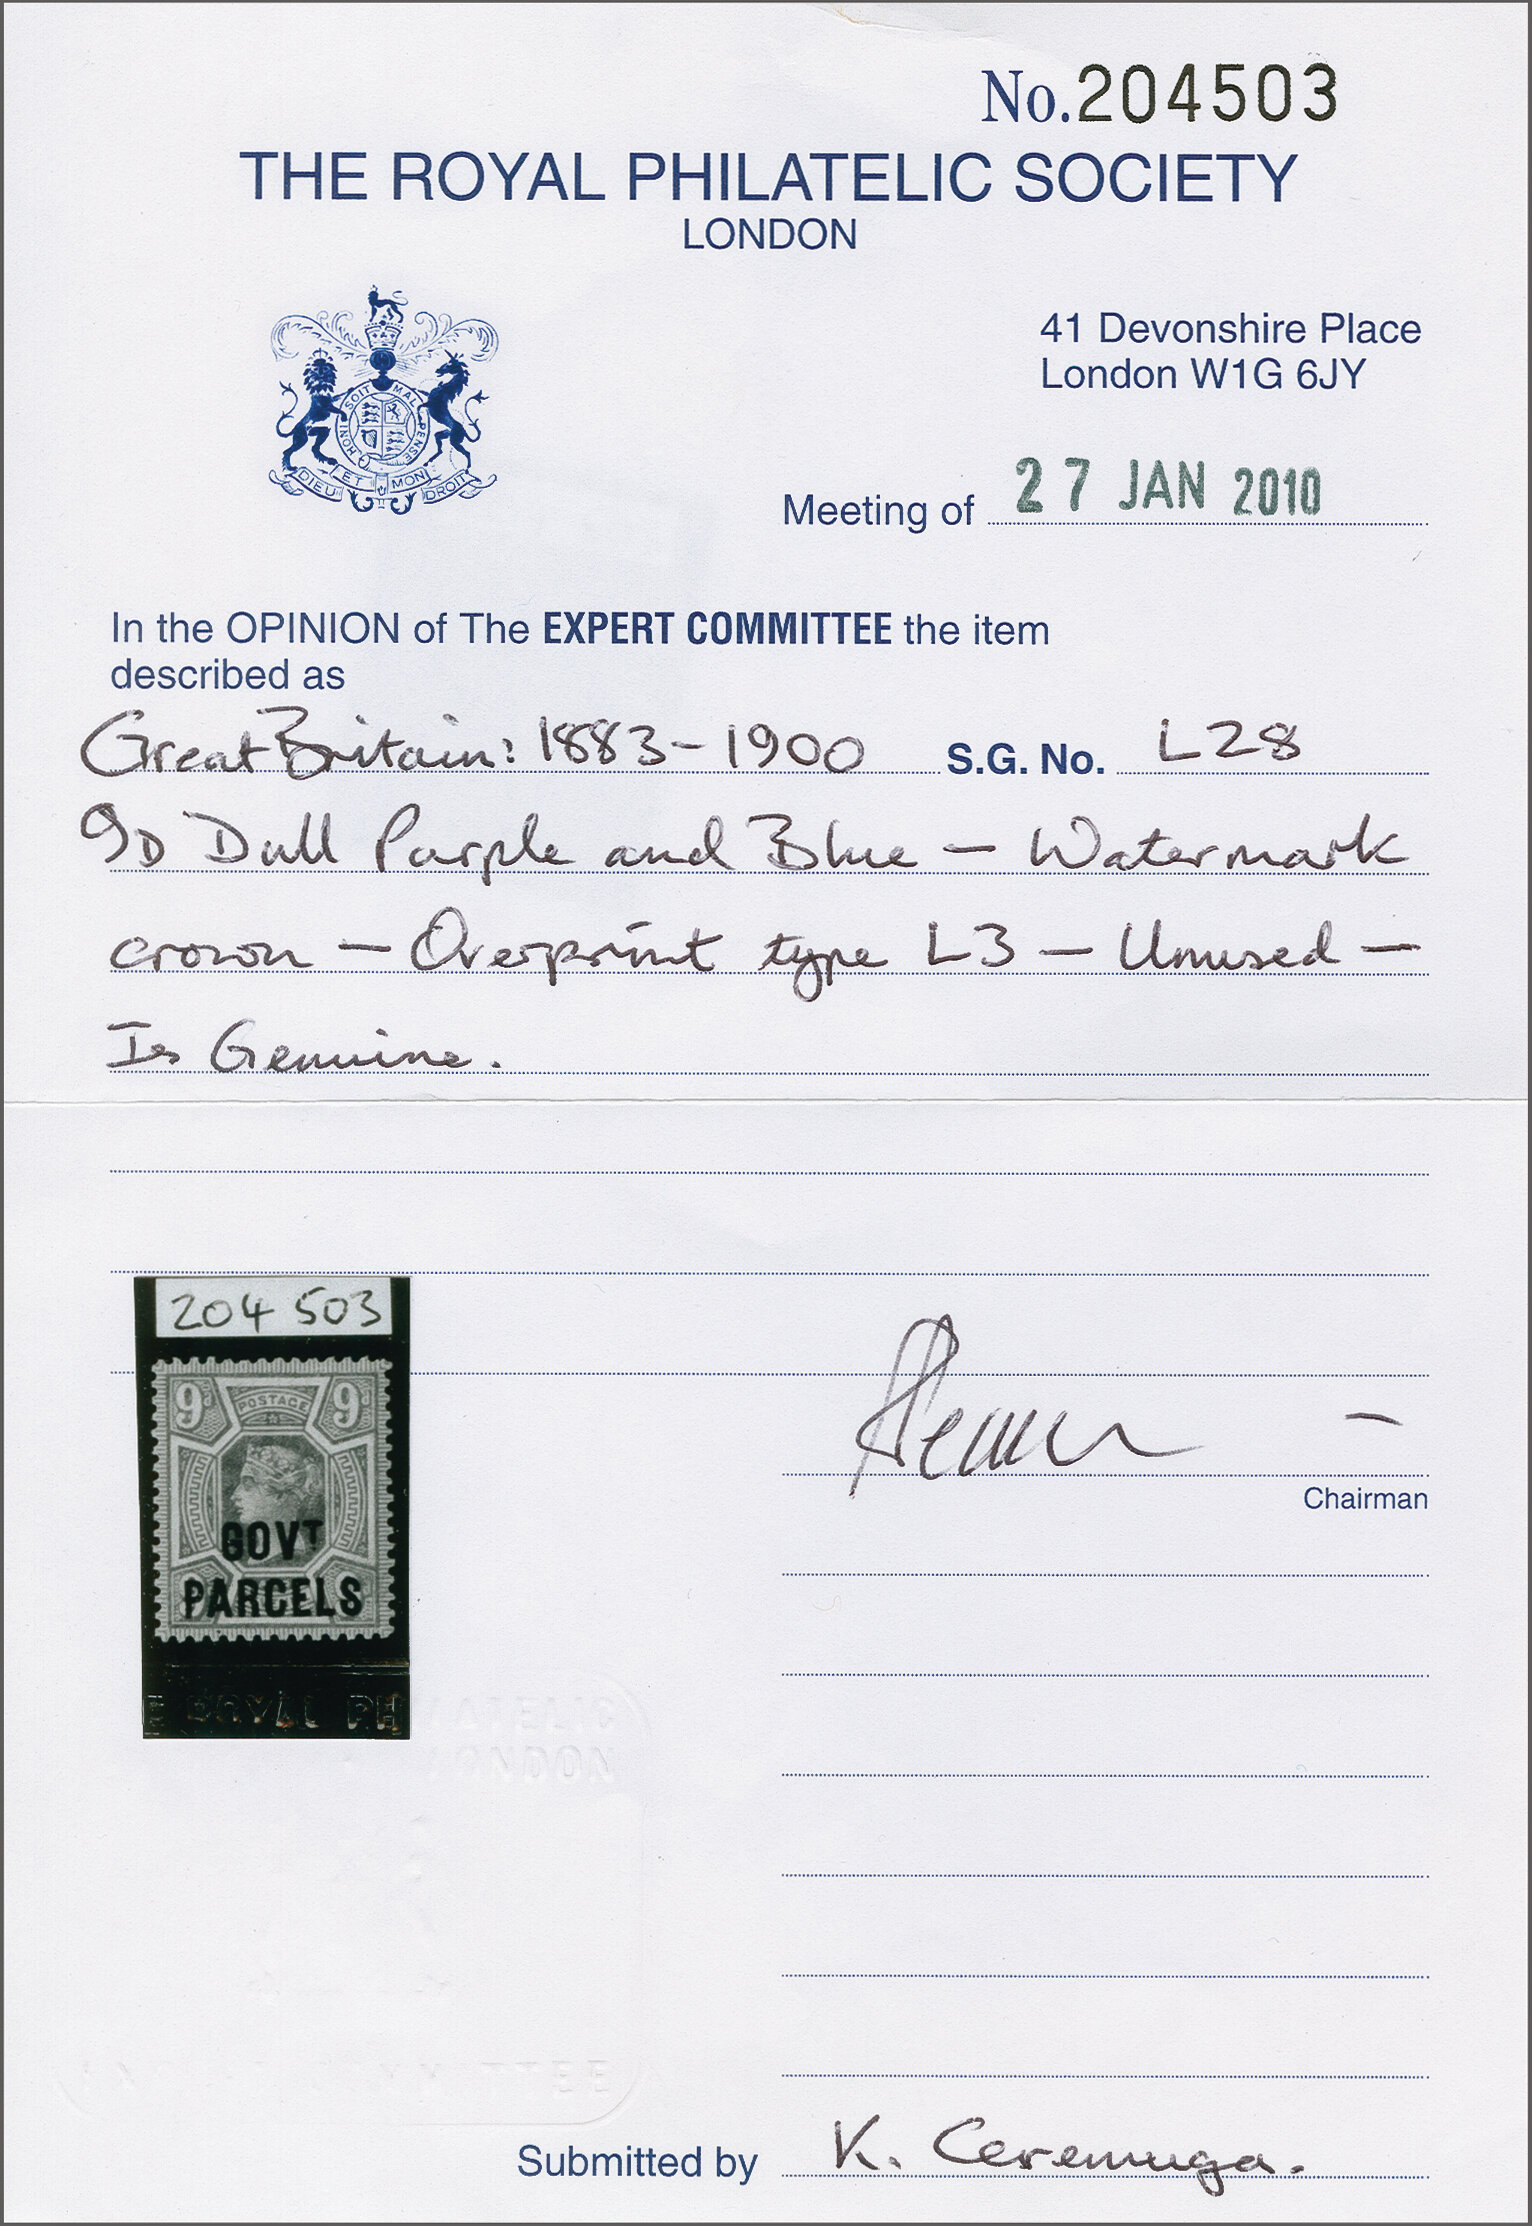 No.204503
THE ROYAL PHILATELIC SOCIETY
LONDON
41 Devonshire Place
London W1G 6JY
HONI SOIT MAL PENSE
DIEU ET MON DROIT
Meeting of 27 JAN 2010
In the OPINION of The EXPERT COMMITTEE the item
described as
Great Britain: 1883-1900 S.G. No. L28
9D Dull Purple and Blue - Watermark
crown - Overprint type L3 - Unused -
Is Genuine.
204 503
9d POSTAGE 9d
GOVT
PARCELS
Chairman
E ROYAL PHILATELIC
LONDON
COMMITTEE
Submitted by K. Ceremuga.